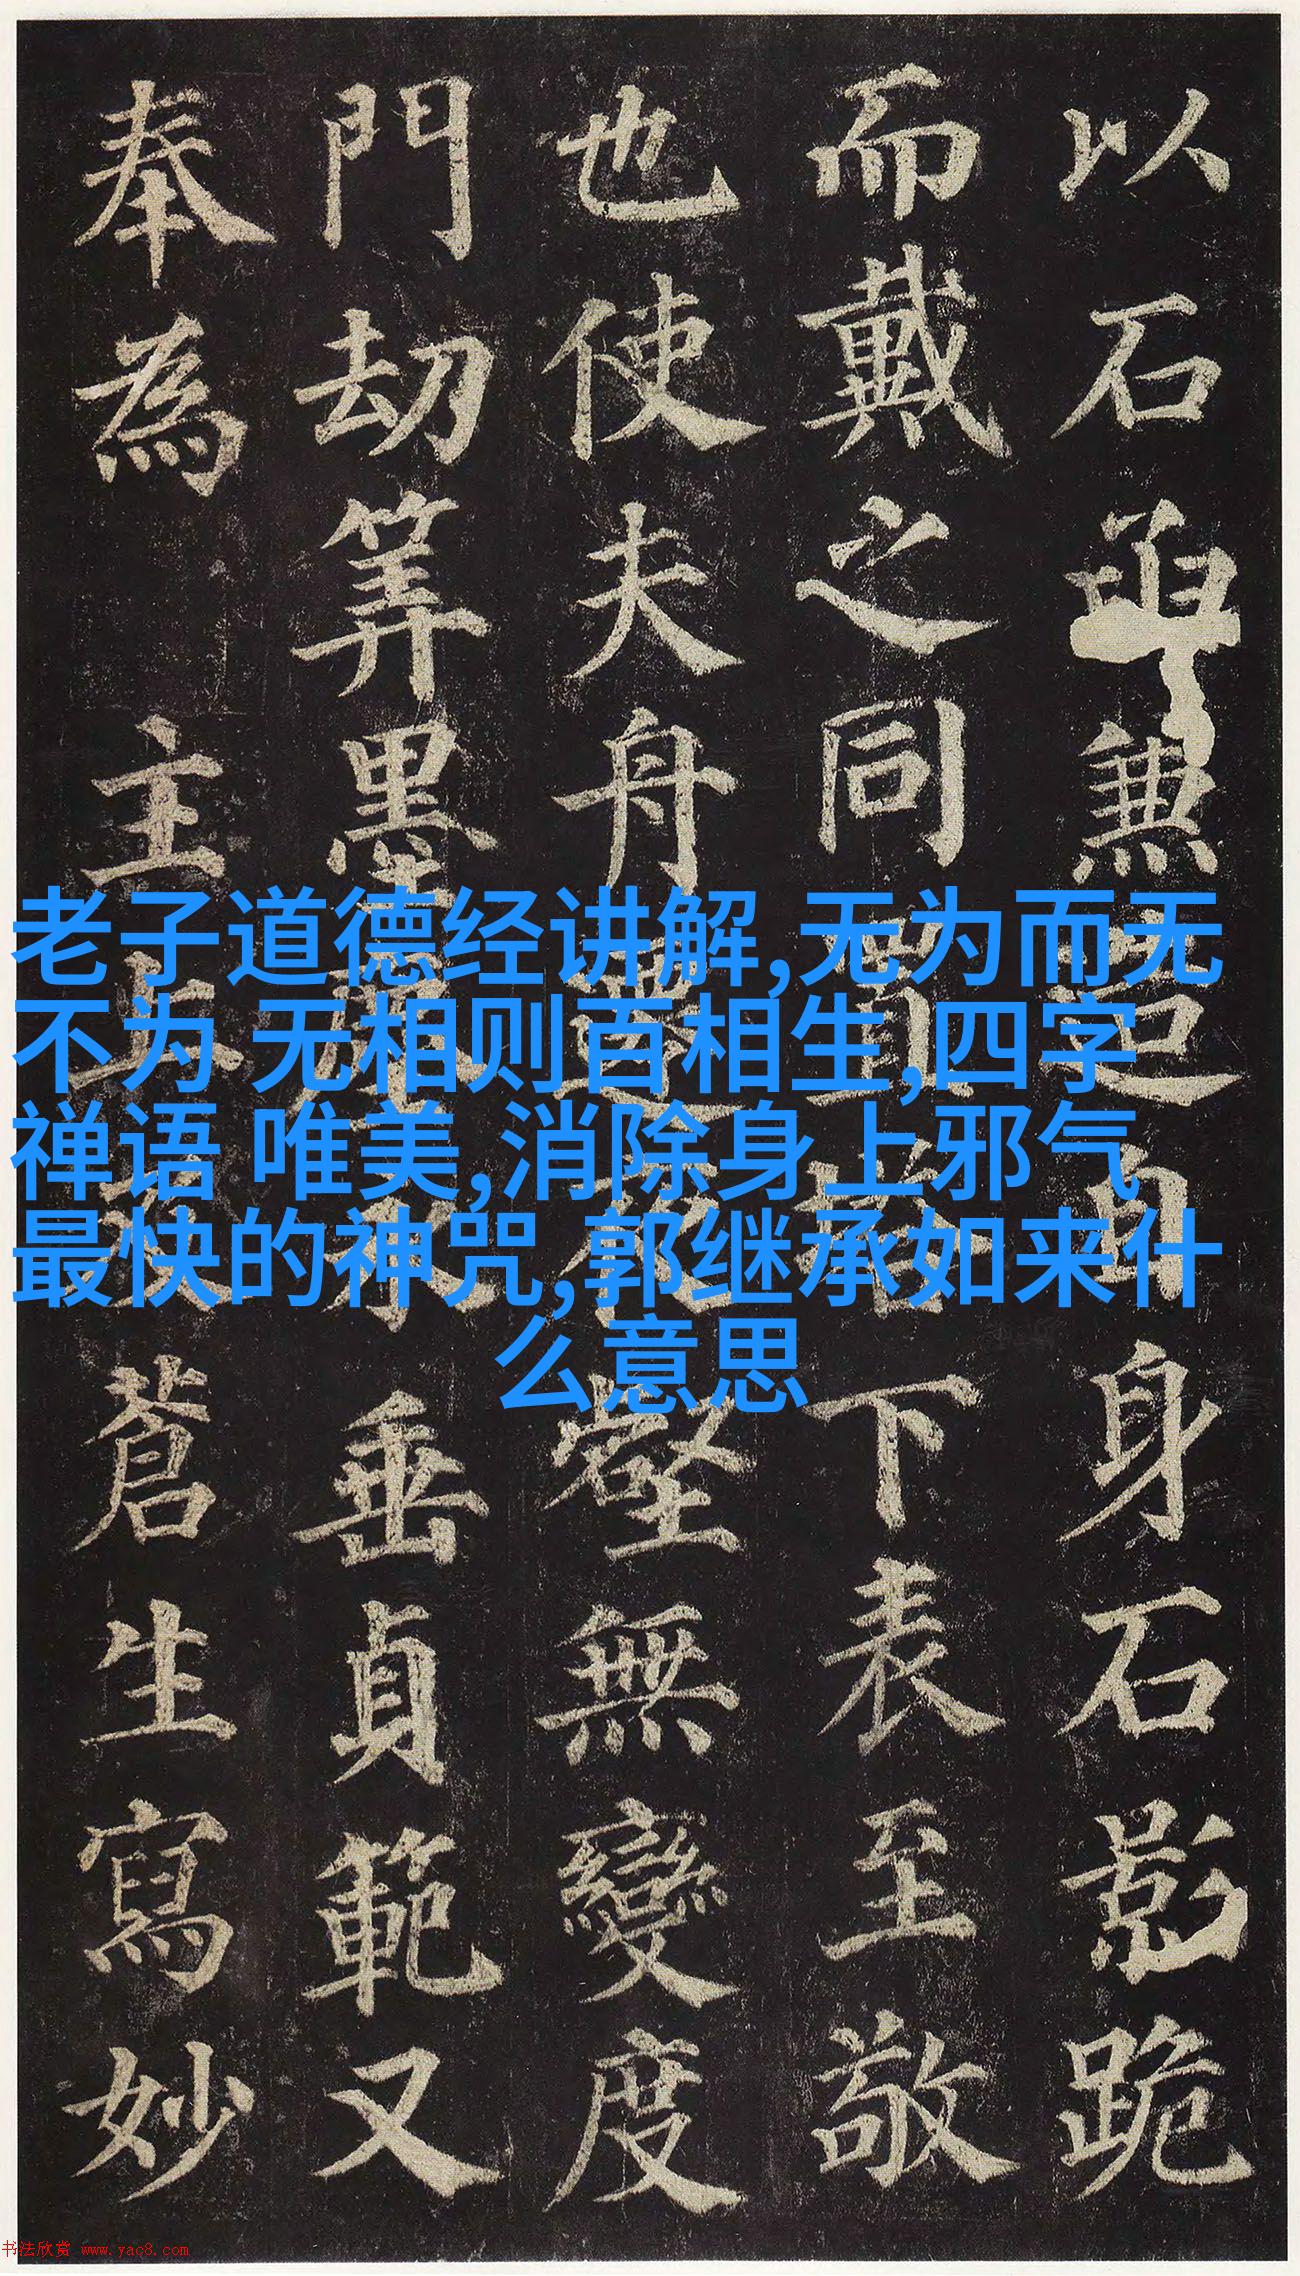 以石兼造自身石影跪
而戴之同置塔下表至敬
也使夫舟遷夜壑無變度
門劫筭墨塵永垂貞範又
奉為 主上及蒼生寫妙
老子道德经讲解,无为而无
不为 无相则百相生,四字
禅语 唯美,消除身上邪气
最快的神咒,郭继承如来什
么意思
书法欣赏 www.yac8.com